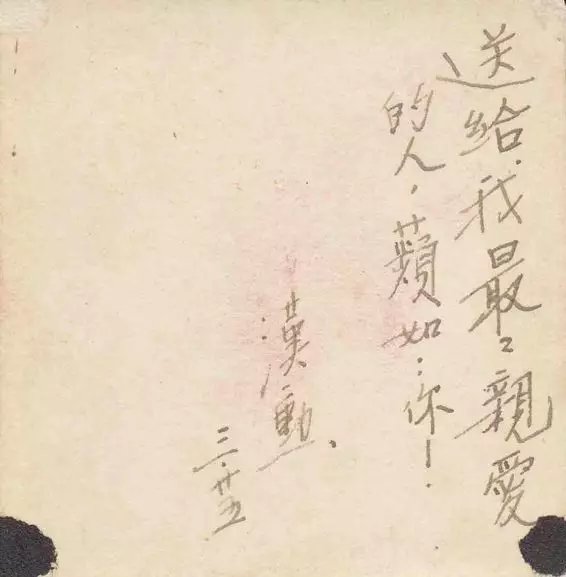 送給我最〻親愛
的人，蘋如：你！
漢勳、
三.廿五